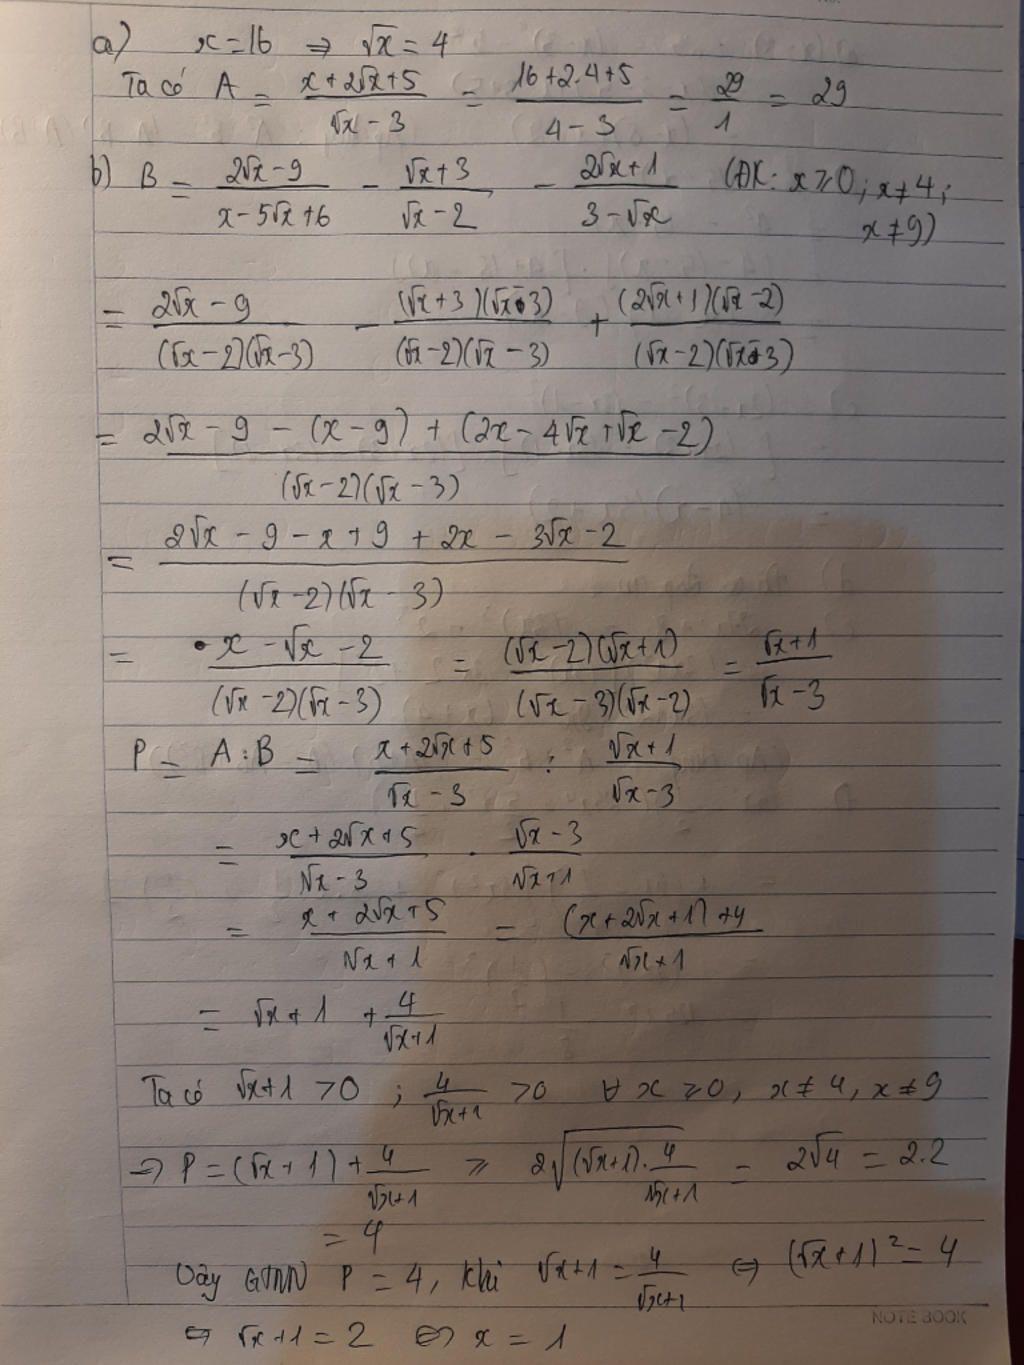 a) x = 16 ⇒ √x = 4
Ta có A = (x + 2√x + 5)/(√x - 3) = (16 + 2.4 + 5)/(4 - 3) = 29/1 = 29
b) B = (2√x - 9)/(x - 5√x + 6) - (√x + 3)/(√x - 2) - (2√x + 1)/(3 - √x) (ĐK: x ≥ 0; x ≠ 4;
x ≠ 9)
= (2√x - 9)/((√x - 2)(√x - 3)) - ((√x + 3)(√x - 3))/((√x - 2)(√x - 3)) + ((2√x + 1)(√x - 2))/((√x - 2)(√x - 3))
= (2√x - 9 - (x - 9) + (2x - 4√x + √x - 2))/((√x - 2)(√x - 3))
= (2√x - 9 - x + 9 + 2x - 3√x - 2)/((√x - 2)(√x - 3))
= (x - √x - 2)/((√x - 2)(√x - 3)) = ((√x - 2)(√x + 1))/((√x - 3)(√x - 2)) = (√x + 1)/(√x - 3)
P = A : B = (x + 2√x + 5)/(√x - 3) : (√x + 1)/(√x - 3)
= (x + 2√x + 5)/(√x - 3) . (√x - 3)/(√x + 1)
= (x + 2√x + 5)/(√x + 1) = ((x + 2√x + 1) + 4)/(√x + 1)
= √x + 1 + 4/(√x + 1)
Ta có √x + 1 > 0 ; 4/(√x + 1) > 0 ∀ x ≥ 0, x ≠ 4, x ≠ 9
⇒ P = (√x + 1) + 4/(√x + 1) ≥ 2√((√x + 1) . 4/(√x + 1)) = 2√4 = 2.2
= 4
Vậy GTNN P = 4, khi √x + 1 = 4/(√x + 1) ⇔ (√x + 1)² = 4
⇔ √x + 1 = 2 ⇔ x = 1
NOTE BOOK